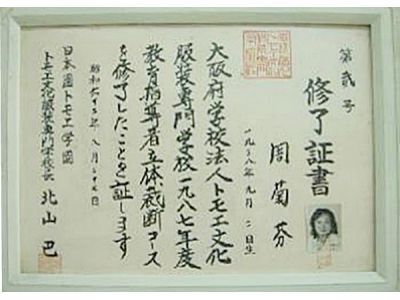 第弐号
修了証書
周菊芬
一九三八年九月二日生
大阪府学校法人トモエ文化
服装専門学校一九八七年度
教育指導者立体裁断コース
を修了したことを証します
昭和六十二年八月二十七日
日本国トモエ学園
トモエ文化服装専門学校長 北山 巴